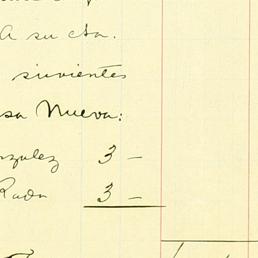 A su cta.
sirvientes
sa Nueva:
nzalez 3 -
Rada 3 -